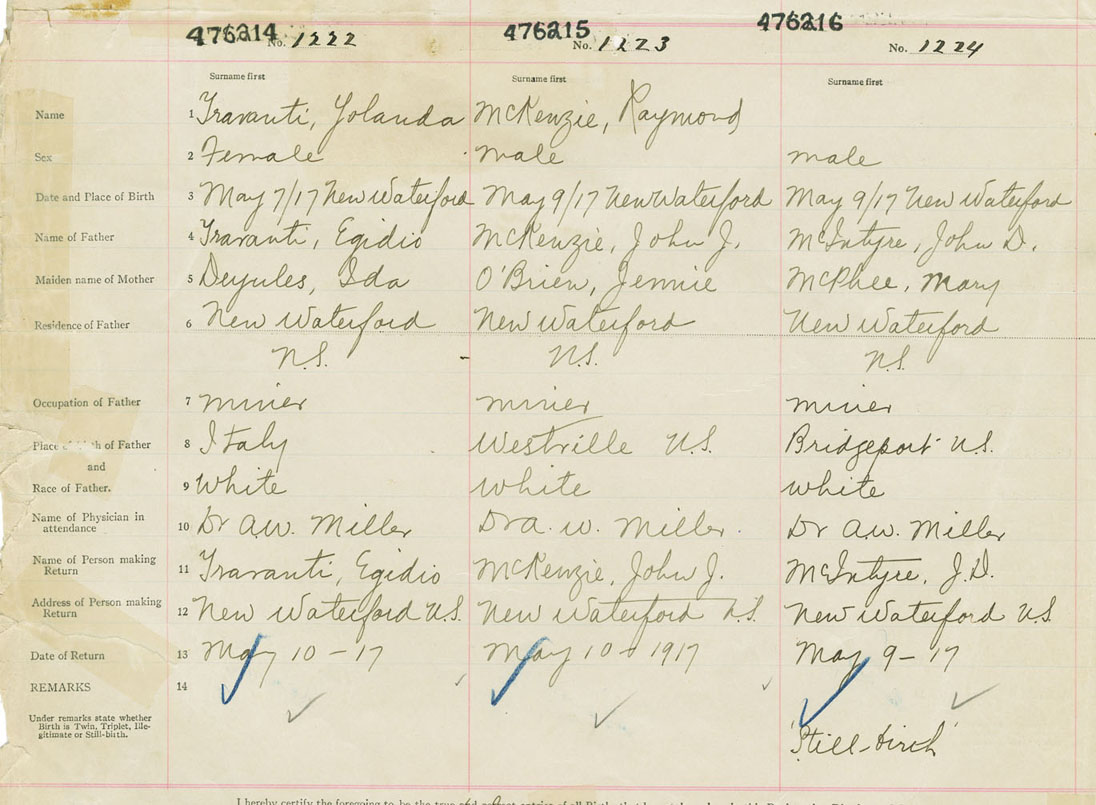 476214 No. 1222 476215 No. 1223 476216 No. 1224
Surname first Surname first Surname first
Name 1 Travanti, Yolanda McKenzie, Raymond
Sex 2 Female male male
Date and Place of Birth 3 May 7/17 New Waterford May 9/17 New Waterford May 9/17 New Waterford
Name of Father 4 Travanti, Egidio McKenzie, John J. McIntyre, John D.
Maiden name of Mother 5 Deyules, Ida O'Brien, Jennie McPhee, Mary
Residence of Father 6 New Waterford New Waterford New Waterford
N.S. N.S. N.S.
Occupation of Father 7 miner miner miner
Place of Birth of Father 8 Italy Westville N.S. Bridgeport N.S.
and
Race of Father. 9 White white white
Name of Physician in
attendance 10 Dr A.W. Miller Dr A. W. Miller. Dr A.W. Miller
Name of Person making
Return 11 Travanti, Egidio McKenzie, John J. McIntyre, J.D.
Address of Person making
Return 12 New Waterford N.S. New Waterford N.S. New Waterford N.S.
Date of Return 13 May 10-17 May 10-1917 May 9-17
REMARKS 14
Under remarks state whether
Birth is Twin, Triplet, Ille-
gitimate or Still-birth.
"Still-birth"
I hereby certify the foregoing to be the true and correct entries of all Birth